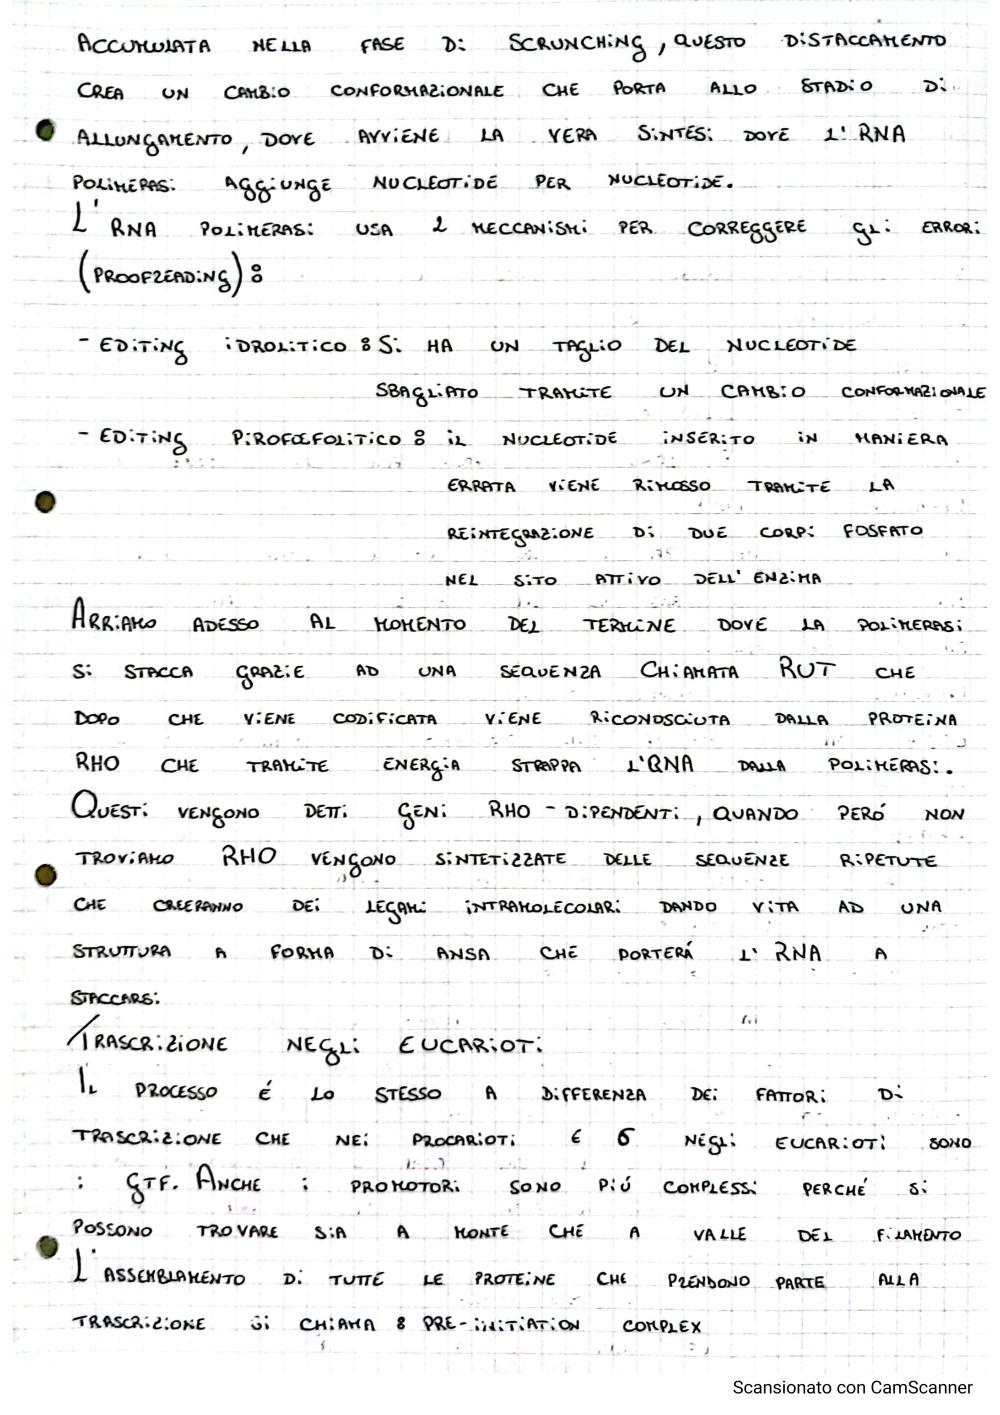 ACCUMULATA NELLA FASE Di SCRUNCHiNG, QUESTO DiSTACCAMENTO
CREA UN CAMBiO CONFORMAZIONALE CHE PORTA ALLO STADIO Di
ALLUNGAMENTO, DOVE AVVIENE LA VERA SiNTESi DOVE L'RNA
POLiMERASi AGGiUNGE NUCLEOTiDE PER NUCLEOTiDE.
L'RNA POLiMERASi USA 2 MECCANiSMi PER CORREGGERE GLi ERRORi
(PROOFREADiNG):
- EDiTiNG iDROLiTiCO: Si HA UN TAGLiO DEL NUCLEOTiDE
SBAGLiATO TRAMiTE UN CAMBiO CONFORMAZiONALE
- EDiTiNG PiROFOSFOLiTiCO: iL NUCLEOTiDE iNSERiTO iN MANiERA
ERRATA ViENE RiMOSSO TRAMiTE LA
REiNTEGRAZiONE Di DUE CORPi FOSFATO
NEL SiTO ATTiVO DELL'ENZiMA
ARRiAMO ADESSO AL MOMENTO DEL TERMiNE DOVE LA POLiMERASi
Si STACCA GRAZiE AD UNA SEQUENZA CHiAMATA RUT CHE
DOPO CHE ViENE CODiFiCATA ViENE RiCONOSCiUTA DALLA PROTEiNA
RHO CHE TRAMiTE ENERGiA STRAPPA L'RNA DALLA POLiMERASi.
QUESTi VENGONO DETTi GENi RHO-DiPENDENTi, QUANDO PERÓ NON
TROViAMO RHO VENGONO SiNTETiZZATE DELLE SEQUENZE RiPETUTE
CHE CREERANNO DEi LEGAMi iNTRAMOLECOLARi DANDO ViTA AD UNA
STRUTTURA A FORMA Di ANSA CHE PORTERÁ L'RNA A
STACCARSi
TRASCRiZiONE NEGLi EUCARiOTi
IL PROCESSO É LO STESSO A DiFFERENZA DEi FATTORi Di
TRASCRiZiONE CHE NEi PROCARiOTi É 6 NEGLi EUCARiOTi SONO
i GTF. ANCHE i PROMOTORi SONO PiÚ COMPLESSi PERCHÉ Si
POSSONO TROVARE SiA A MONTE CHE A VALLE DEL FiLAMENTO
L'ASSEMBLAMENTO Di TUTTE LE PROTEiNE CHE PRENDONO PARTE ALLA
TRASCRiZiONE Si CHiAMA: PRE-iNiTiATiON COMPLEX
Scansionato con CamScanner